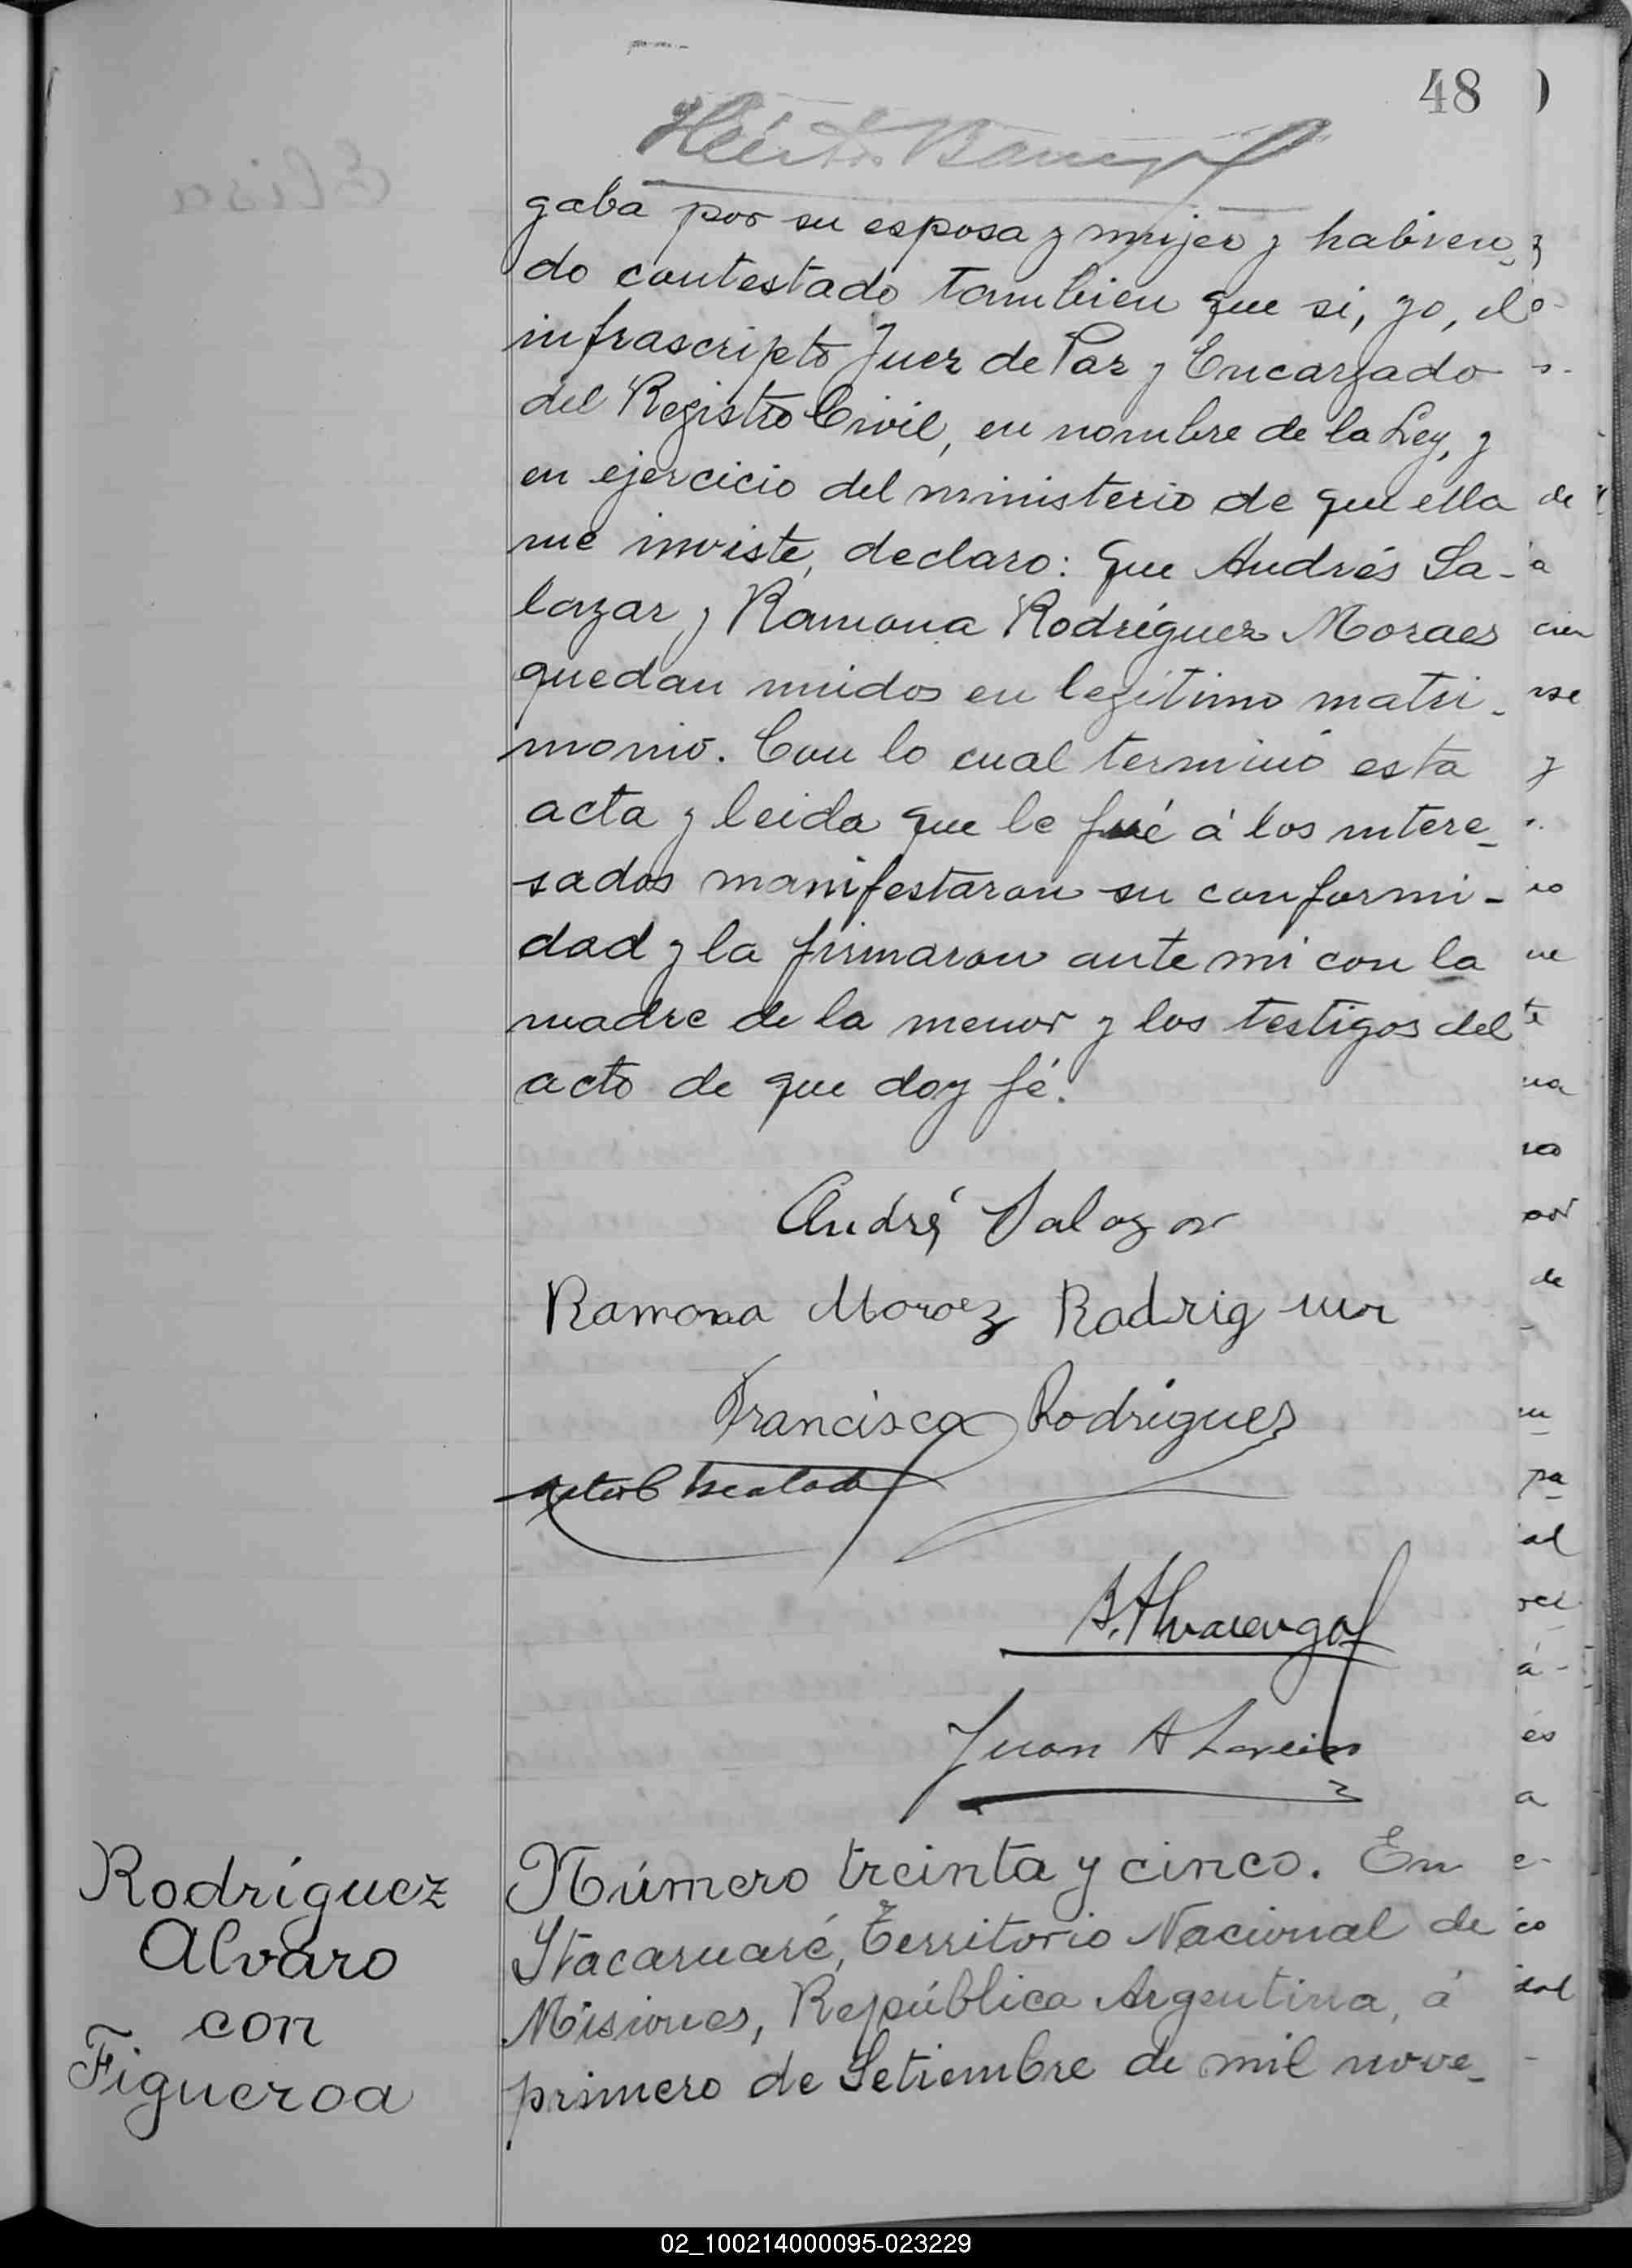 48
gaba por su esposa y mujer y habien-
do contestado tambien que si, yo, el
infrascripto Juez de Paz y Encargado
del Registro Civil, en nombre de la Ley, y
en ejercicio del ministerio de que ella
me inviste, declaro: Que Andrés Sa-
lazar y Ramona Rodríguez Moraes
quedan unidos en legítimo matri-
monio. Con lo cual terminó esta
acta y leida que le fué á los intere-
sados manifestaron su conformi-
dad y la firmaron ante mi con la
madre de la menor y los testigos del
acto de que doy fé.
André Salazar
Ramona Moraez Rodriguez
Francisca Rodriguez
B. Alvarenga
Juan A
Rodríguez
Alvaro
con
Figueroa
Número treinta y cinco. En
Itacaruaré, Territorio Nacional de
Misiones, República Argentina, á
primero de Setiembre de mil nove-
02_100214000095-023229